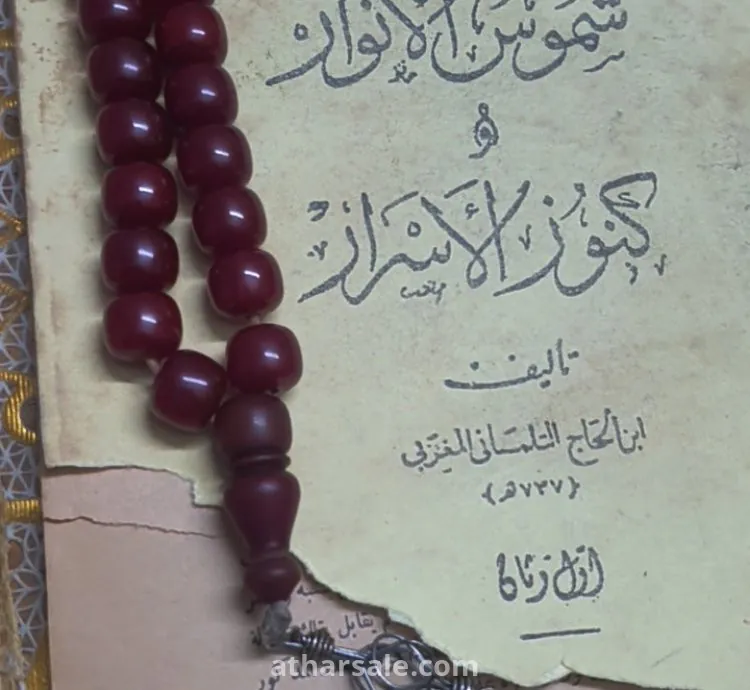 شموس الأنوار
و
كنوز الأسرار
تأليف
ابن الحاج التلمساني المغربي
(٧٣٧ هـ)
يقابل
atharsale.com